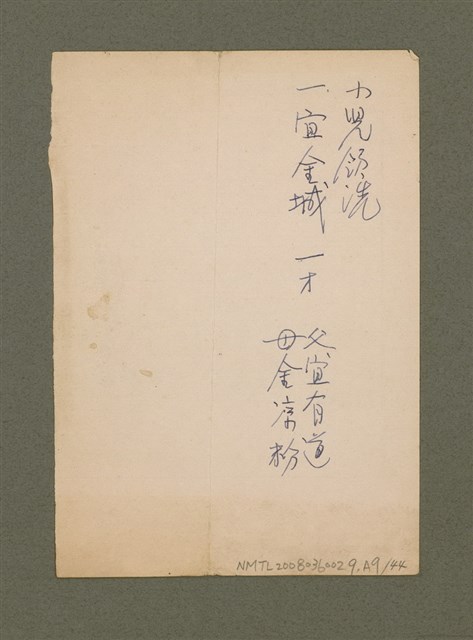 小児領洗
一. 宜金城 一才
父宜有道
母金凉粉
NMTL20080360029.A9/44